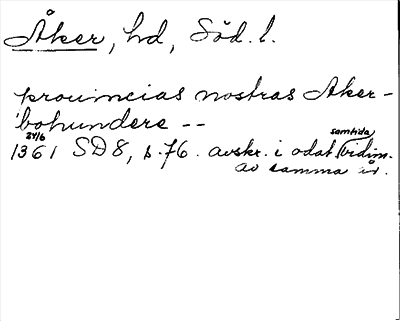 Åker, hd, Söd. l.
prouincias nostras Aker-
bohundere --
24/6 samtida
1361 SD 8, s. 76. avskr. i odat. vidim.
av samma år.